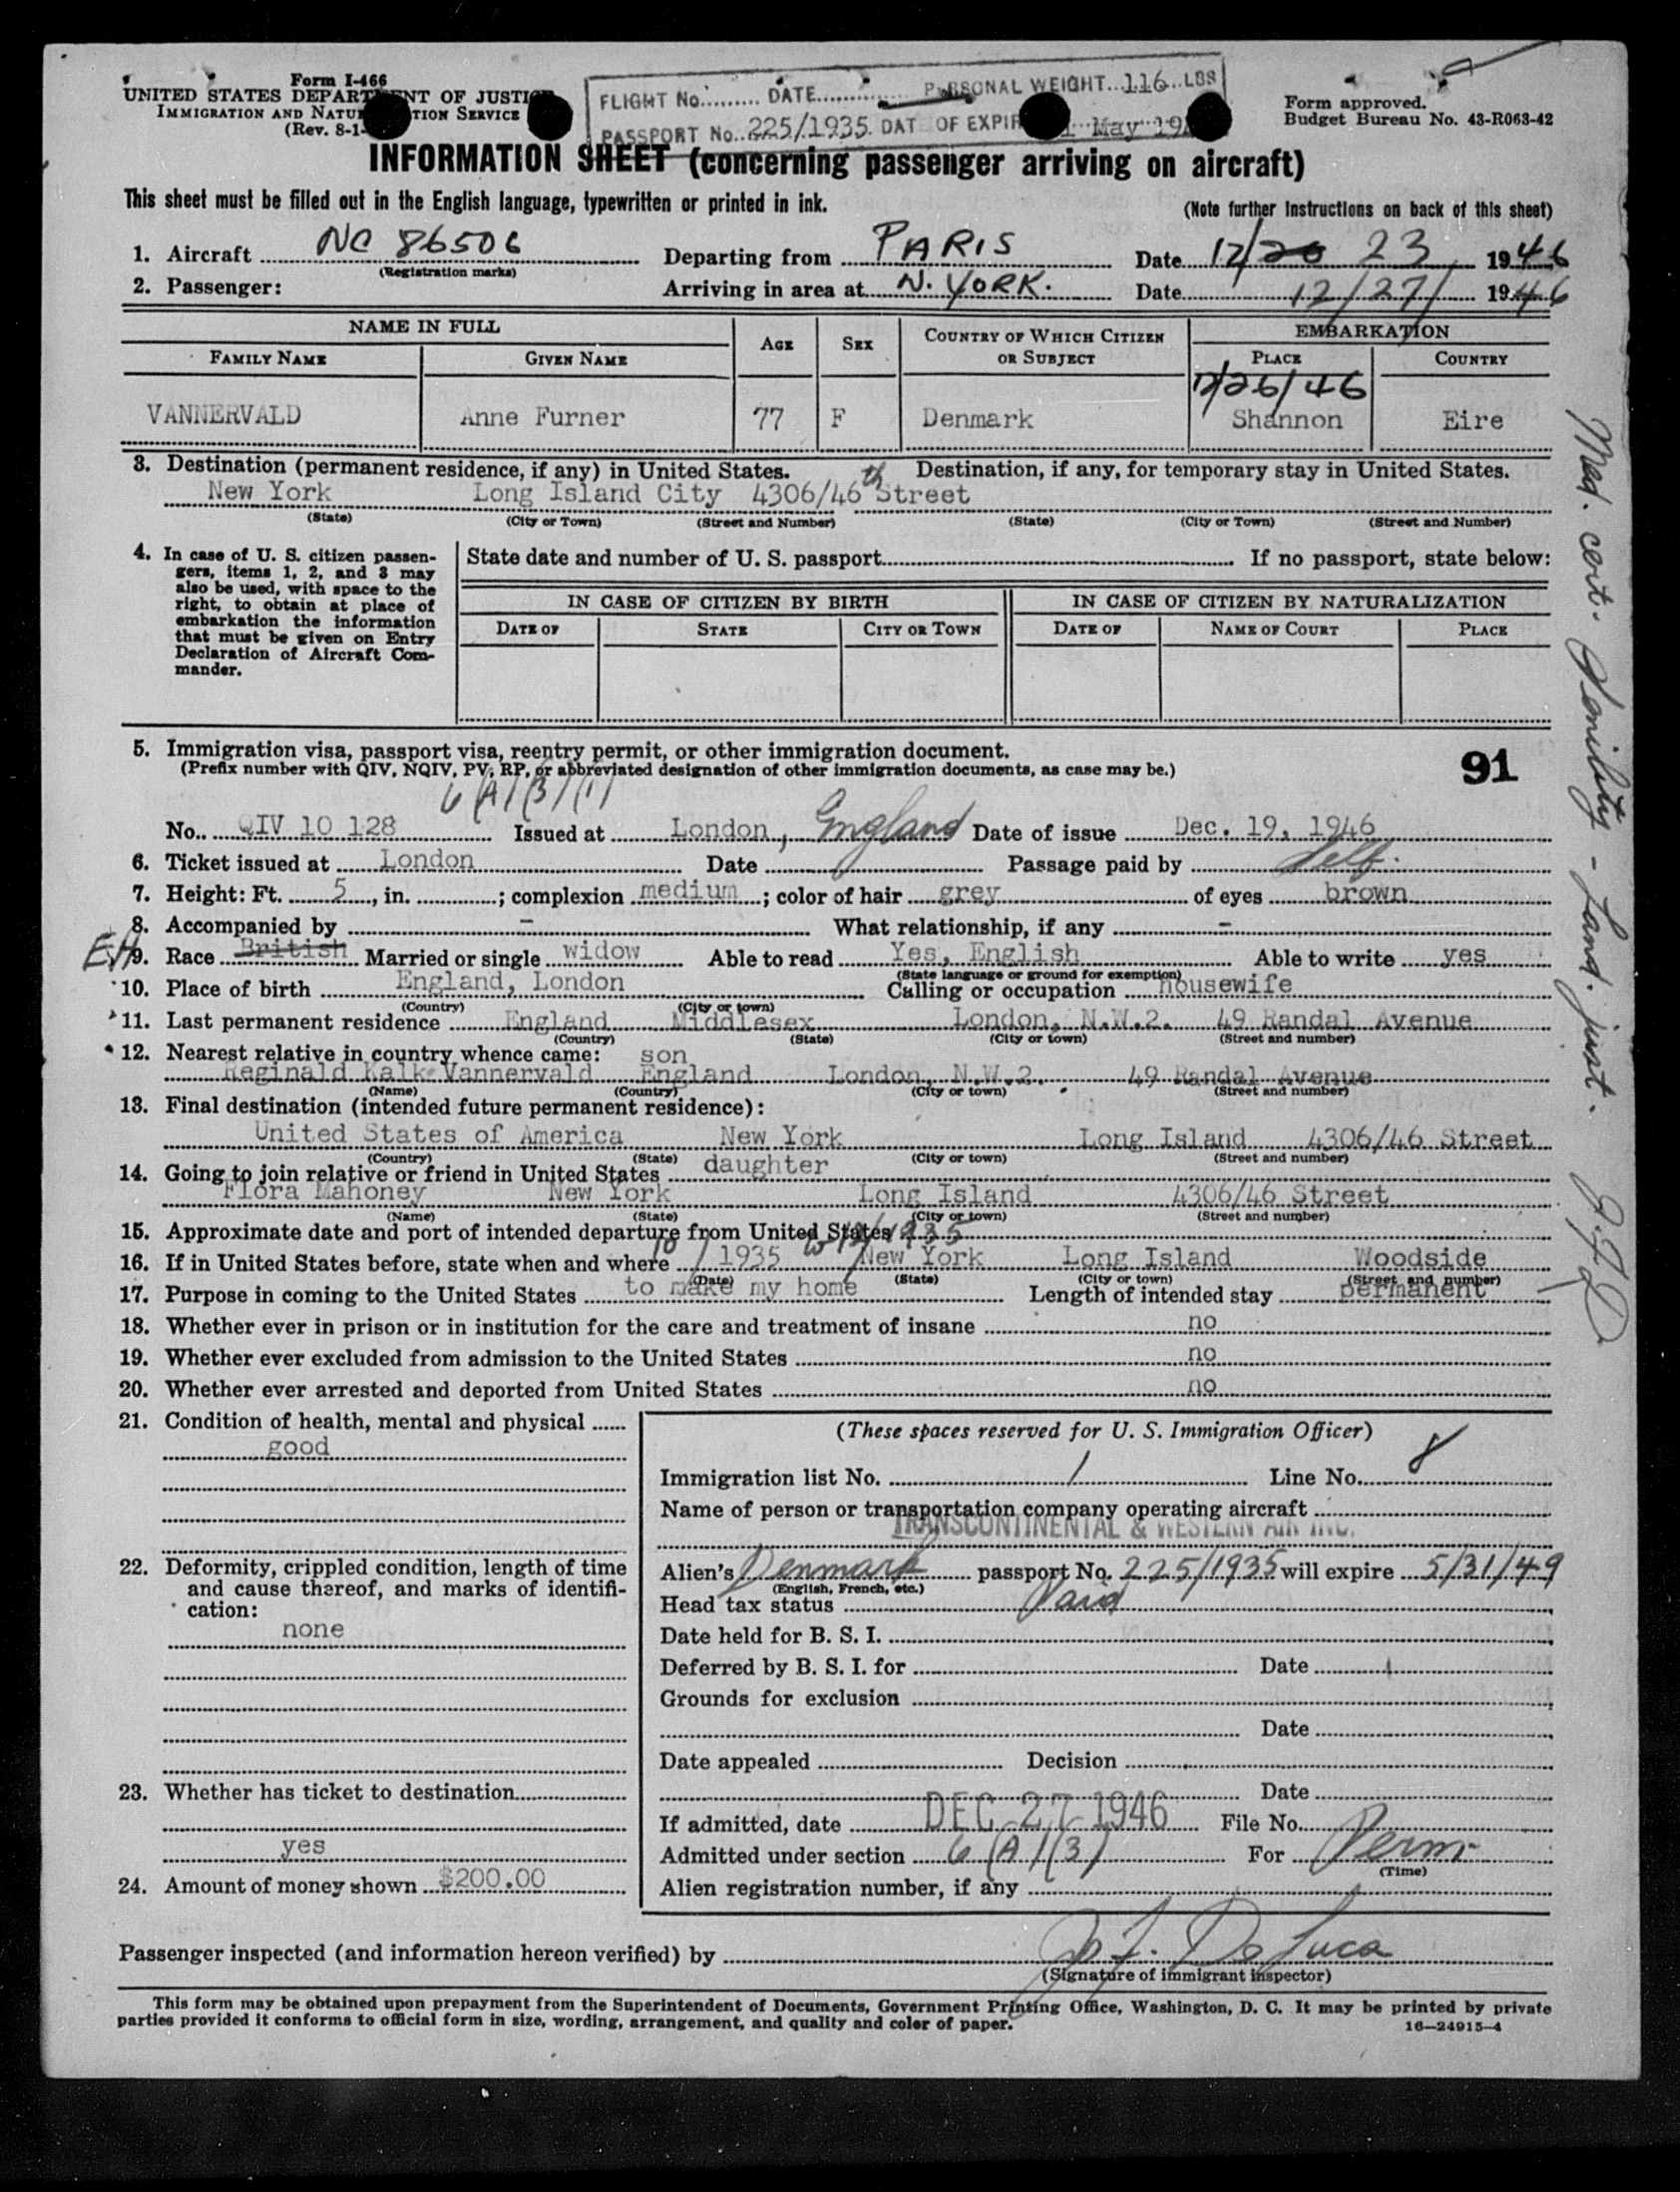 Form I-466
UNITED STATES DEPARTMENT OF JUSTICE
IMMIGRATION AND NATURALIZATION SERVICE
(Rev. 8-1-
FLIGHT No......... DATE............. PERSONAL WEIGHT...116...LBS
PASSPORT No. 225/1935. DATE OF EXPIR May 19
Form approved.
Budget Bureau No. 43-R063-42
INFORMATION SHEET (concerning passenger arriving on aircraft)
This sheet must be filled out in the English language, typewritten or printed in ink.
(Note further instructions on back of this sheet)
1. Aircraft NC 86506 Departing from PARIS Date 12/20 23 1946
(Registration marks)
2. Passenger: Arriving in area at N. YORK. Date 12/27/ 1946
NAME IN FULL
FAMILY NAME GIVEN NAME AGE SEX COUNTRY OF WHICH CITIZEN OR SUBJECT EMBARKATION PLACE COUNTRY
12/26/46
VANNERVALD Anne Furner 77 F Denmark Shannon Eire
3. Destination (permanent residence, if any) in United States. Destination, if any, for temporary stay in United States.
New York Long Island City 4306/46th Street
(State) (City or Town) (Street and Number) (State) (City or Town) (Street and Number)
4. In case of U. S. citizen passengers, items 1, 2, and 3 may also be used, with space to the right, to obtain at place of embarkation the information that must be given on Entry Declaration of Aircraft Commander.
State date and number of U. S. passport If no passport, state below:
IN CASE OF CITIZEN BY BIRTH IN CASE OF CITIZEN BY NATURALIZATION
DATE OF STATE CITY OR TOWN DATE OF NAME OF COURT PLACE
5. Immigration visa, passport visa, reentry permit, or other immigration document.
(Prefix number with QIV, NQIV, PV, RP, or abbreviated designation of other immigration documents, as case may be.)
91
6(A)(3)(1)
No. QIV 10 128 Issued at London, England Date of issue Dec. 19, 1946
6. Ticket issued at London Date Passage paid by Self.
7. Height: Ft. 5, in. ; complexion medium; color of hair grey of eyes brown
8. Accompanied by - What relationship, if any -
EH 9. Race British Married or single widow Able to read Yes, English Able to write yes
(State language or ground for exemption)
10. Place of birth England, London Calling or occupation housewife
(Country) (City or town)
11. Last permanent residence England Middlesex London, N.W.2. 49 Randal Avenue
(Country) (State) (City or town) (Street and number)
12. Nearest relative in country whence came: son
Reginald Kalk Vannervald England London, N.W.2. 49 Randal Avenue
(Name) (Country) (City or town) (Street and number)
13. Final destination (intended future permanent residence):
United States of America New York Long Island 4306/46 Street
(Country) (State) (City or town) (Street and number)
14. Going to join relative or friend in United States daughter
Flora Mahoney New York Long Island 4306/46 Street
(Name) (State) (City or town) (Street and number)
15. Approximate date and port of intended departure from United States
10/ to 12/1935
16. If in United States before, state when and where 1935 New York Long Island Woodside
(Date) (State) (City or town) (Street and number)
17. Purpose in coming to the United States to make my home Length of intended stay permanent
18. Whether ever in prison or in institution for the care and treatment of insane no
19. Whether ever excluded from admission to the United States no
20. Whether ever arrested and deported from United States no
21. Condition of health, mental and physical
good
22. Deformity, crippled condition, length of time and cause thereof, and marks of identification:
none
23. Whether has ticket to destination
yes
24. Amount of money shown $200.00
(These spaces reserved for U. S. Immigration Officer)
Immigration list No. 1 Line No. 8
Name of person or transportation company operating aircraft
TRANSCONTINENTAL & WESTERN AIR INC.
Alien's Denmark passport No. 225/1935 will expire 5/31/49
(English, French, etc.)
Head tax status Paid
Date held for B. S. I.
Deferred by B. S. I. for Date
Grounds for exclusion
Date
Date appealed Decision
Date
If admitted, date DEC 27 1946 File No.
Admitted under section 6(A)(3) For Perm.
(Time)
Alien registration number, if any
Passenger inspected (and information hereon verified) by J. F. De Luca
(Signature of immigrant inspector)
This form may be obtained upon prepayment from the Superintendent of Documents, Government Printing Office, Washington, D. C. It may be printed by private
parties provided it conforms to official form in size, wording, arrangement, and quality and color of paper.
16—24915-4
Med. cert. Senility - Land. just.